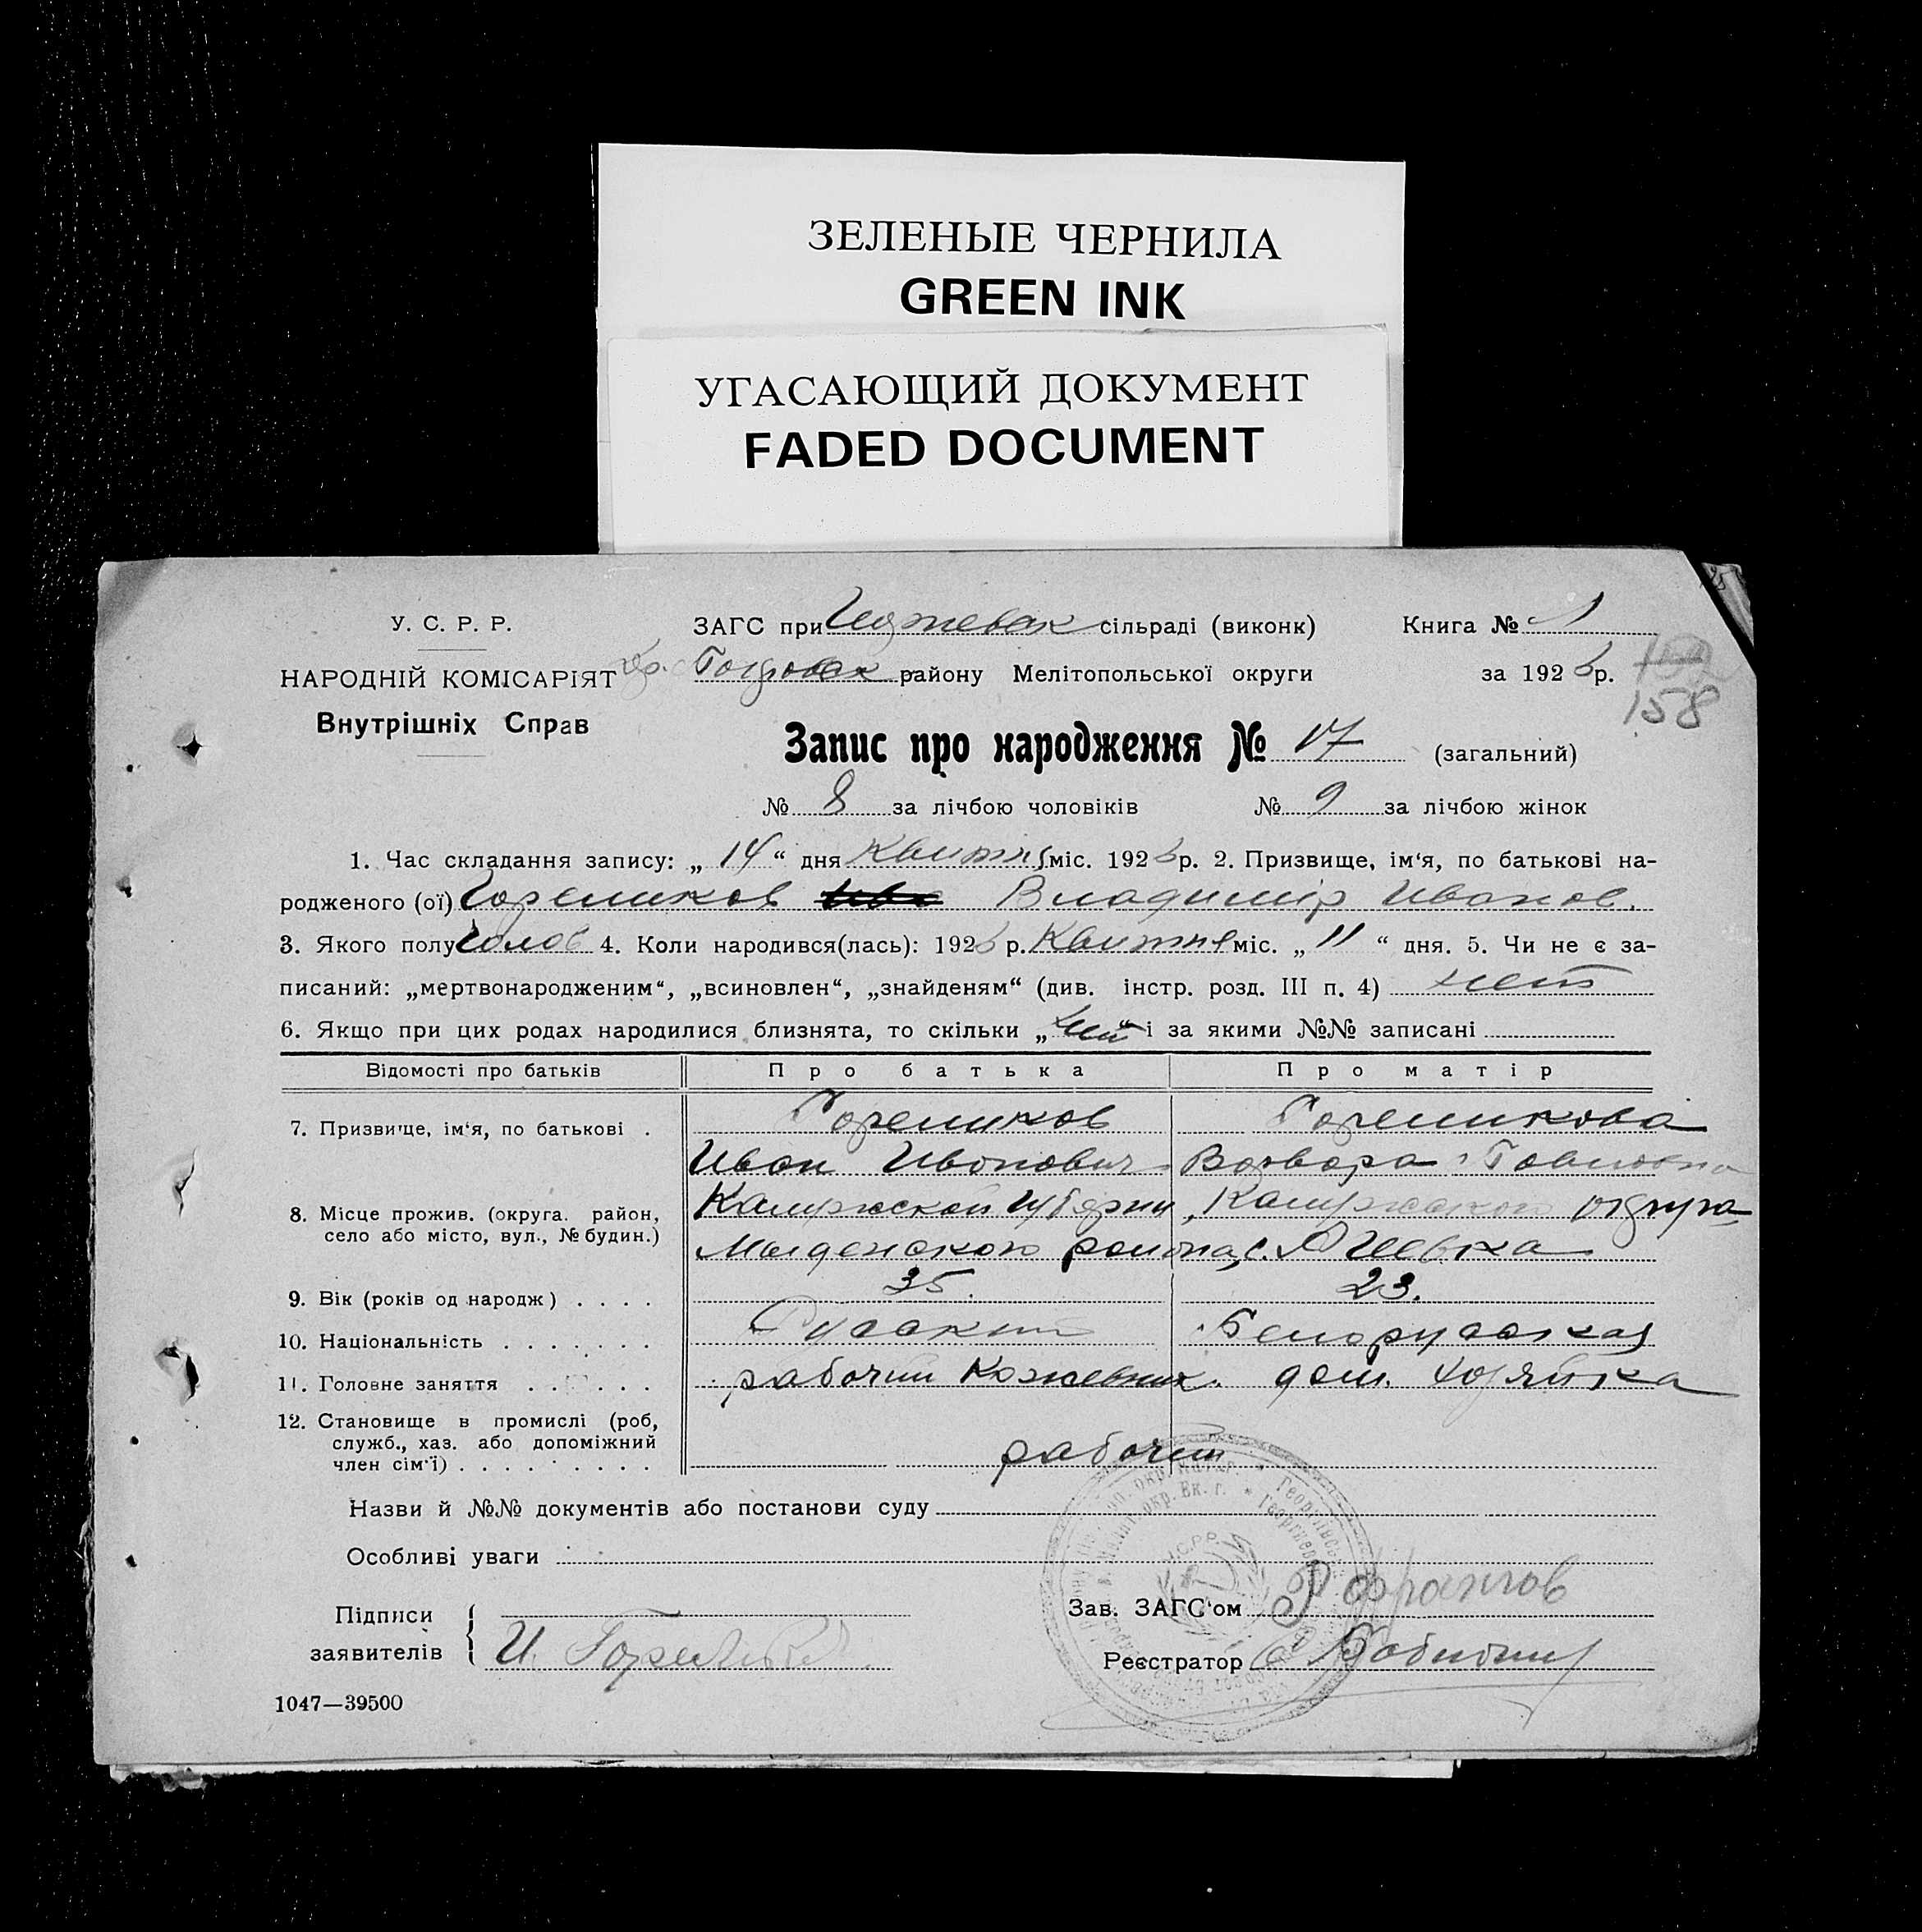 ЗЕЛЕНЫЕ ЧЕРНИЛА
GREEN INK
УГАСАЮЩИЙ ДОКУМЕНТ
FADED DOCUMENT
У. С. Р. Р.
ЗАГС при сільраді (виконк)
Книга № 1
НАРОДНІЙ КОМІСАРІЯТ
району Мелітопольської округи
за 1926 р.
158
Внутрішніх Справ
Запис про народження № 17 (загальний)
№ 8 за лічбою чоловіків № 9 за лічбою жінок
1. Час складання запису: „ 14 “ дня Квитня міс. 1926 р. 2. Призвище, ім'я, по батькові на-
родженого (ої) Горешков Владимир Иванов.
3. Якого полу Чолов 4. Коли народився(лась): 1926 р. Квитня міс. „ 11 “ дня. 5. Чи не є за-
писаний: „мертвонародженим“, „всиновлен“, „знайденям“ (див. інстр. розд. III п. 4) нет
6. Якщо при цих родах народилися близнята, то скільки „ “ і за якими №№ записані
Відомості про батьків Про батька Про матір
7. Призвище, ім'я, по батькові . Горешков Горешкова
Иван Иванович Варвара Павловна
8. Місце прожив. (округа. район, Калужской Губернии, Калужского округа
село або місто, вул., № будин.) района, с.
9. Вік (років од народж) . . . . 35. 23.
10. Національність . . . . . . . Русский Белорусская
11. Головне заняття . . . . . рабочий Кожевник. дом. хозяйка
12. Становище в промислі (роб,
служб., хаз. або допоміжний
член сім'ї) . . . . . . . . . рабочий
Назви й №№ документів або постанови суду
Особливі уваги
Підписи
заявителів
И.
Зав. ЗАГС'ом
Реєстратор
1047—39500